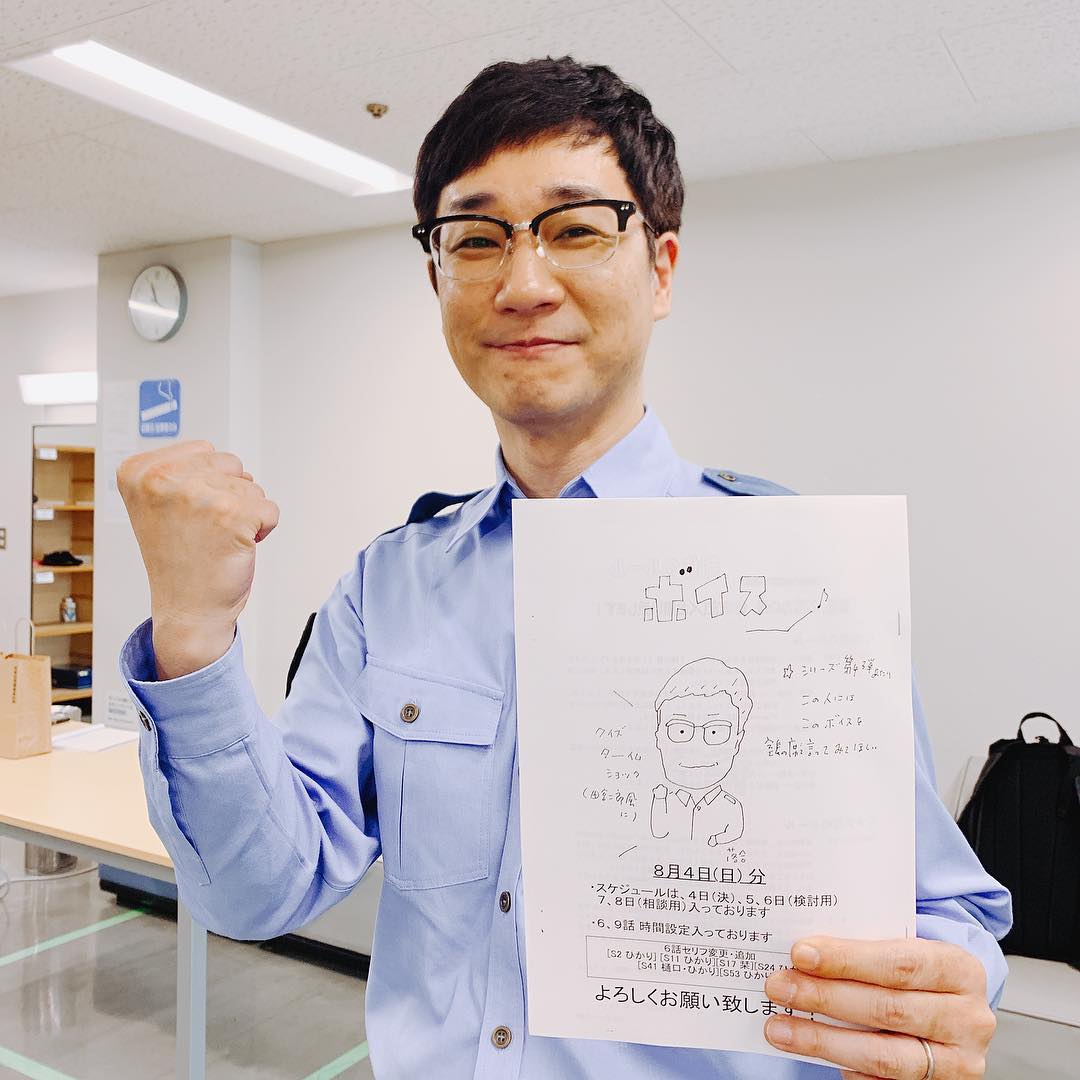 ボイス
☆シリーズ第4弾
この人には
このボイスを
言ってみてほしい
クイズ
タイム
ショック
落合
8月4日(日)分
・スケジュールは、4日(決)、5、6日(検討用)
7、8日(相談用)入っております
・6、9話 時間設定入っております
6話セリフ変更・追加
[S2 ひかり] [S11 ひかり][S17 栞][S24 ひか
[S41 樋口・ひかり][S53 ひかり
よろしくお願い致します